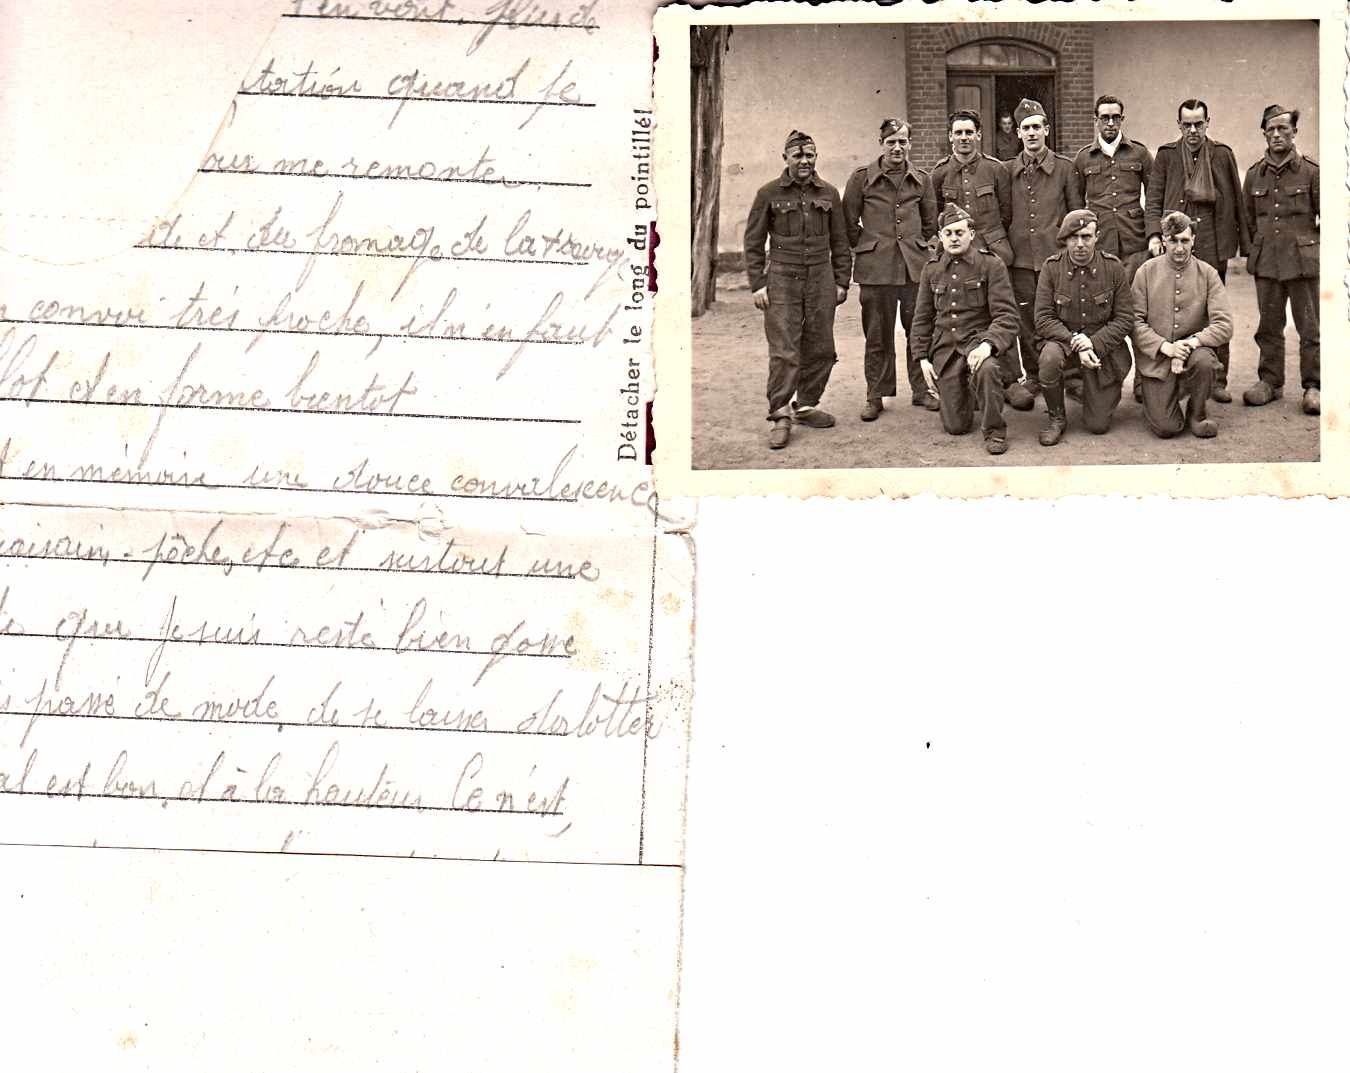 s'en vont. plus de
tation quand je
pour me remonter.
de et du fromage de la
convoi très proche, il n'en faut
et en forme bientot
en mémoire une douce convalescence
pêche, etc et surtout une
que je suis resté bien gosse
passé de mode, de se laisser dorlotter
est bon, et à la hauteur Ce n'est
Détacher le long du pointillé